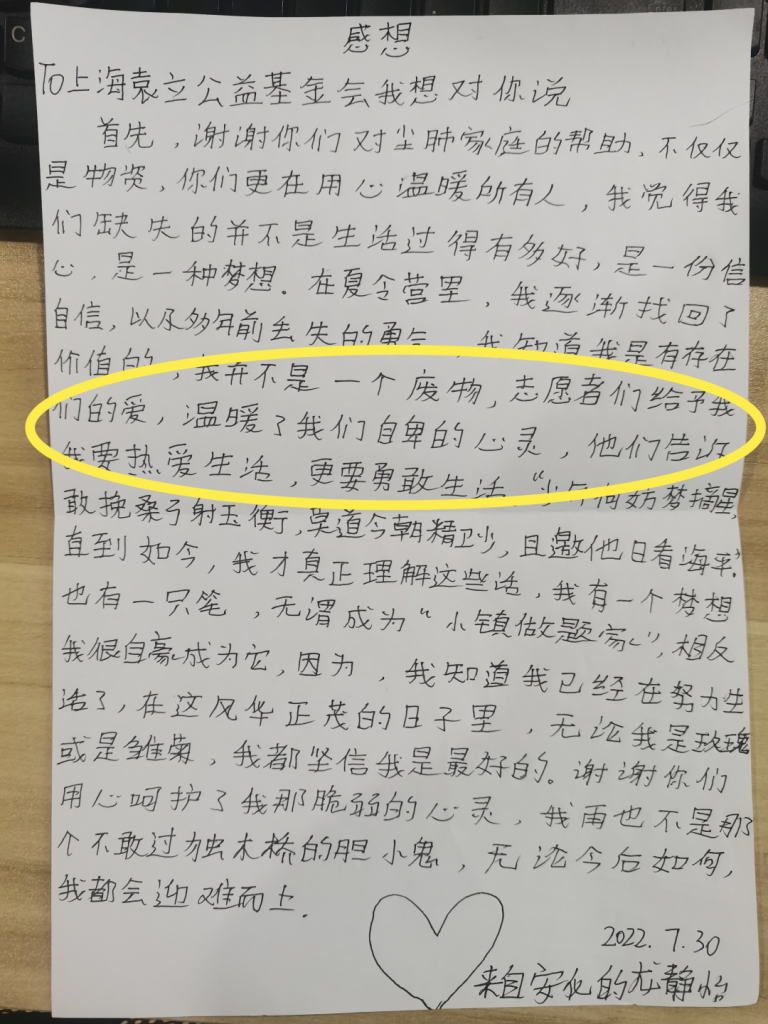 C
感想
To上海袁立公益基金会我想对你说
首先，谢谢你们对尘肺家庭的帮助、不仅仅
是物资，你们更在用心温暖所有人，我觉得我
们缺失的并不是生活过得有多好，是一份信
心，是一种梦想．在夏令营里，我逐渐找回了
自信，以及多年前丢失的勇气，我知道我是有存在
价值的，我并不是一个废物，志愿者们给予我
们的爱，温暖了我们自卑的心灵，他们告诉
我要热爱生活，更要勇敢生活，“少年何妨梦摘星，
敢挽桑弓射玉衡，莫道今朝精卫少，且邀他日看海平”．
直到如今，我才真正理解这些话，我有一个梦想
也有一只笔，无谓成为“小镇做题家”，相反
我很自豪成为它，因为，我知道我已经在努力生
活了，在这风华正茂的日子里，无论我是玫瑰
或是雏菊，我都坚信我是最好的。谢谢你们
用心呵护了我那脆弱的心灵，我再也不是那
个不敢过独木桥的胆小鬼，无论今后如何，
我都会迎难而上．
2022.7.30
来自安化的龙静怡